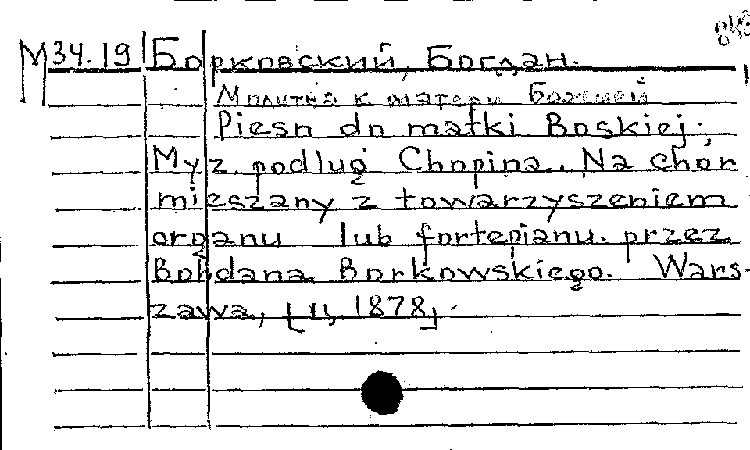 М 34.19 Борковский, Богдан.
Молитва к матери Божией
Piesn do matki Boskiej.
Myz podlug Chopina. Na chór
mieszany z towarzyszeniem
organu lub fortepianu. przez
Bohdana Borkowskiego. Wars-
zawa, [ц, 1878].